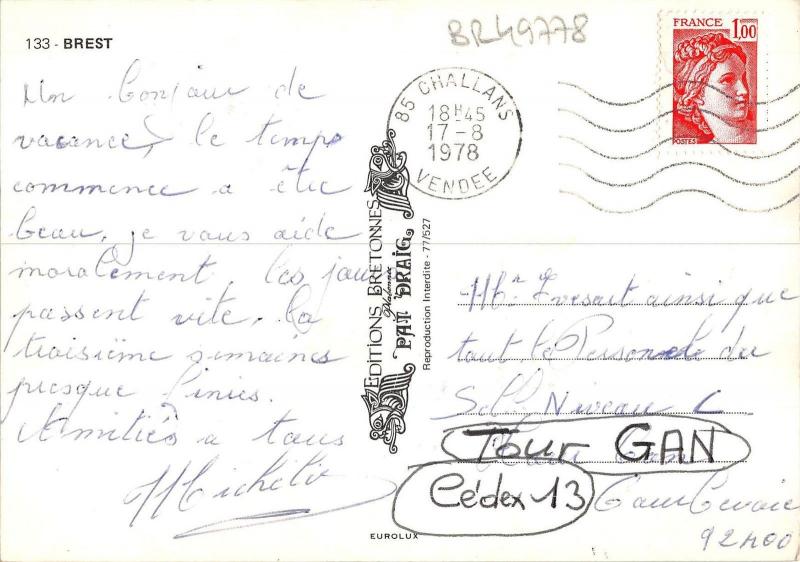 133 - BREST
BR49778
FRANCE 1,00
POSTES
85 CHALLANS
18H45
17-8
1978
VENDEE
Un bonjour de
vacances, le temps
commence a être
beau, je vous aide
moralement, les jours
passent vite, la
troisième semaines
presque finies.
Amitiés a tous
Michèle
EDITIONS BRETONNES
PAT DRAIG
Reproduction Interdite - 77/527
EUROLUX
Mr ainsi que
tout le Personnel du
Niveau C
Tour GAN
Cédex 13
Courbevoie
92400